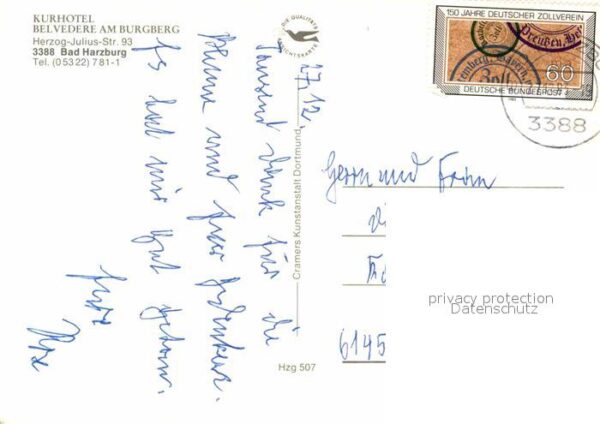 KURHOTEL
BELVEDERE AM BURGBERG
Herzog-Julius-Str. 93
3388 Bad Harzburg
Tel. (05322) 781-1
DIE QUALITÄTS
ANSICHTSKARTE
150 JAHRE DEUTSCHER ZOLLVEREIN
Preußen, He
Zoll
60
DEUTSCHE BUNDESPOST
3388
27.12.
Tausend Dank für die
Blume und Ihre Gedenken.
Es hat mir gut getan.
Ihre
Cramers Kunstanstalt Dortmund
Hzg 507
Herrn und Frau
6145
privacy protection
Datenschutz